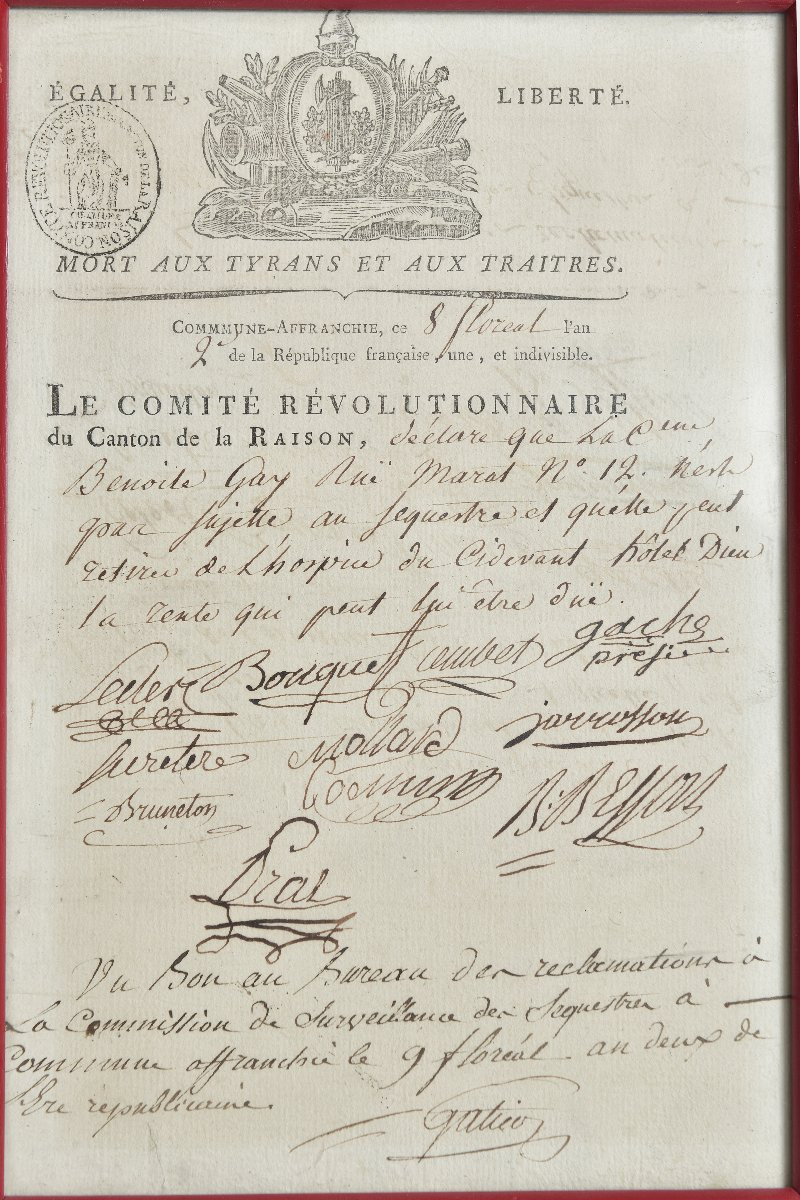 ÉGALITÉ, LIBERTÉ.
COMITÉ RÉVOLUTIONNAIRE CANTON DE LA RAISON
COMMUNE AFFRANCHIE
MORT AUX TYRANS ET AUX TRAITRES.
COMMMUNE-AFFRANCHIE, ce 8 floreal l'an
2e de la République française, une, et indivisible.
LE COMITÉ RÉVOLUTIONNAIRE
du Canton de la RAISON, déclare que La Cene
Benoite Gay Ruë Marat N° 12. n'est
pas sujette au sequestre et qu'elle peut
retirer de L'hospice du Cidevant hôtel Dieu
la rente qui peut lui être duë.
Leclerc Bouquet gache
présid
Mollard jarrosson
Bruneton B. Besson
Prat
Vu Bon au Bureau des reclamations à
La Commission de Surveillance des Sequestres à
Commune affranchie le 9 floréal an deux de
l'Ere republicaine.